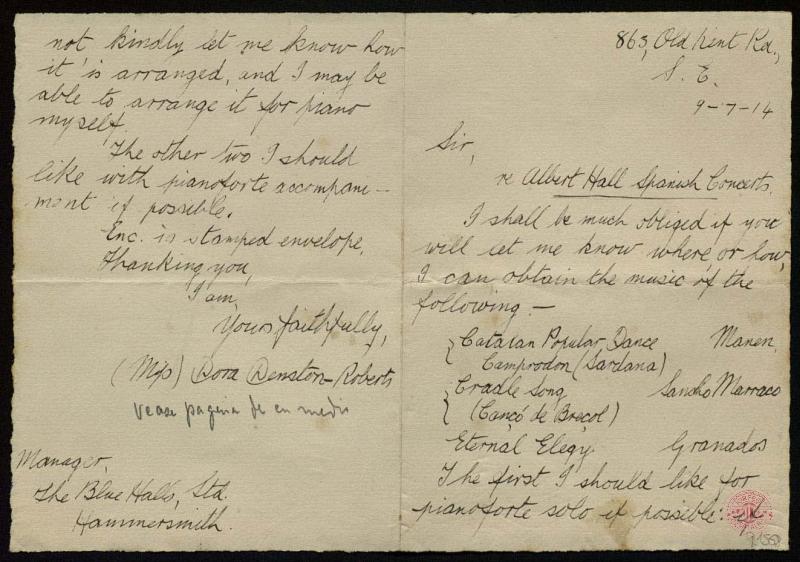 863, Old Kent Rd.,
S. E.
9-7-14
Sir,
re Albert Hall Spanish Concerts.
I shall be much obliged if you
will let me know where or how,
I can obtain the music of the
following:—
Catalan Popular Dance Manen.
Camprodon (Sardana)
Cradle Song Sancho Marraco
(Cançó de Breçol)
Eternal Elegy. Granados
The first I should like for
pianoforte solo if possible: if
not kindly let me know how
it is arranged, and I may be
able to arrange it for piano
myself.
The other two I should
like with pianoforte accompani-
ment if possible.
Enc. is stamped envelope.
Thanking you,
I am,
Yours faithfully,
(Miss) Dora Denston-Roberts
vease pagina de en medio
Manager,
The Blue Halls, Ltd.
Hammersmith.